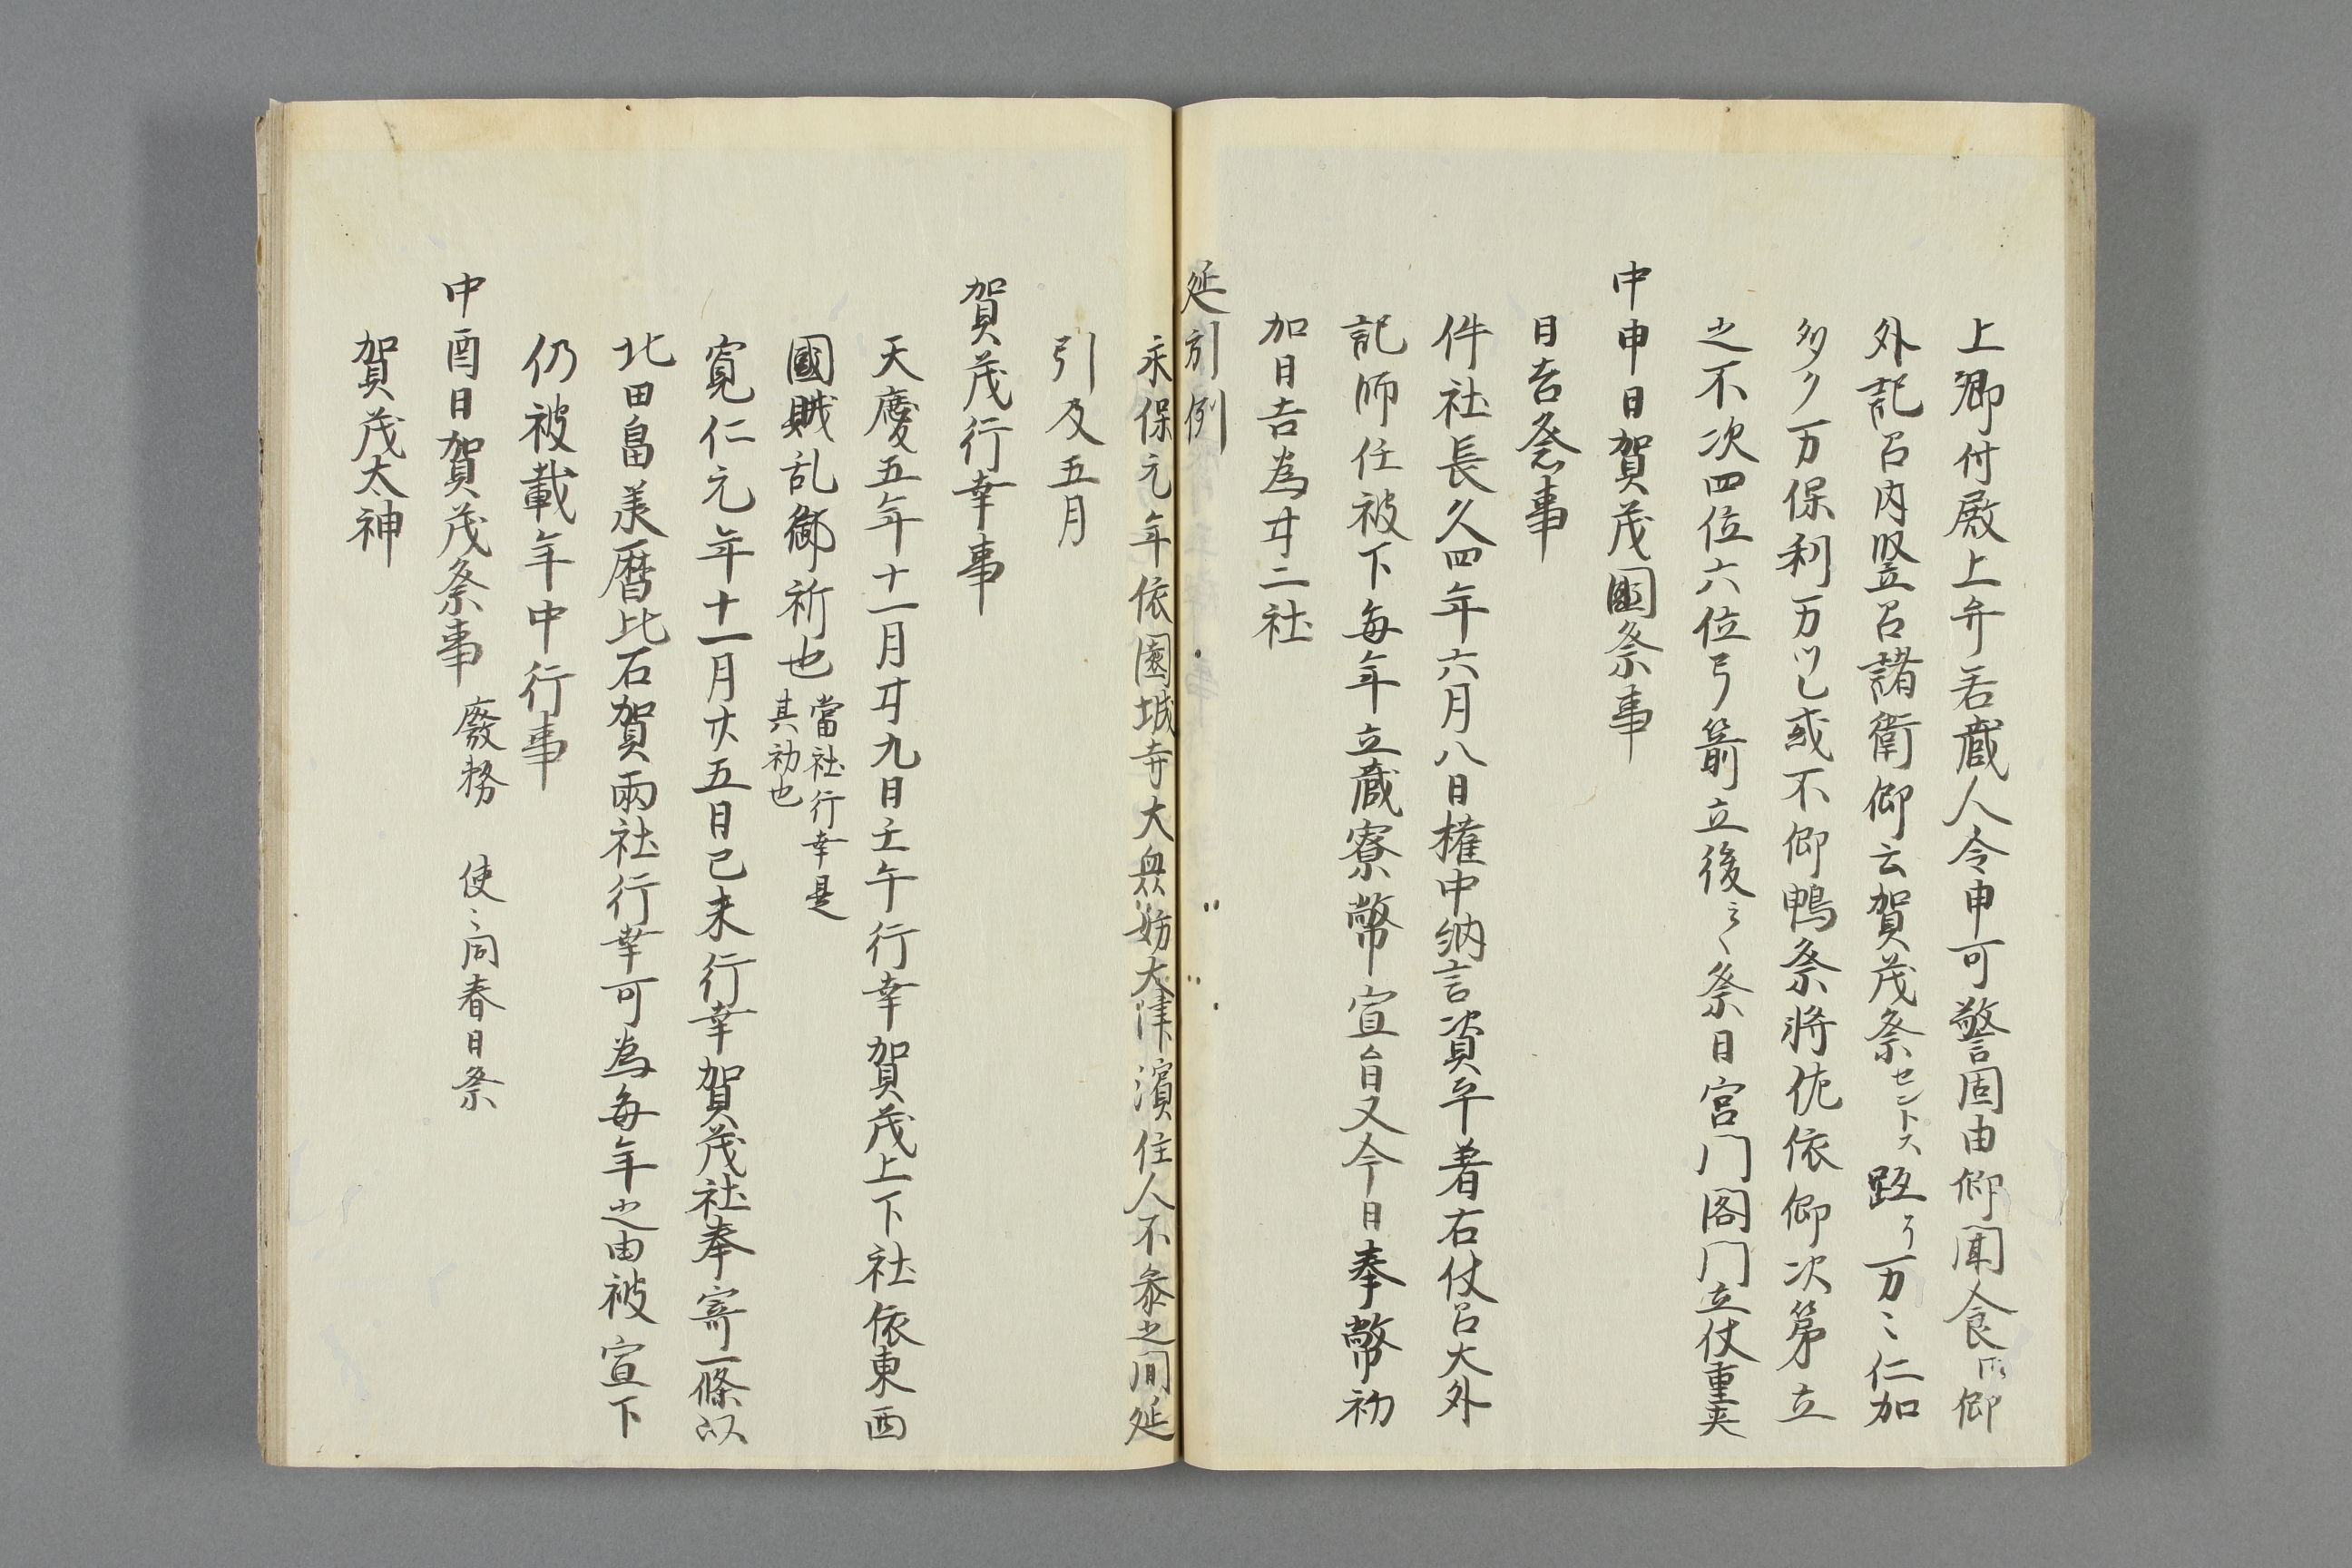 上卿付殿上弁若蔵人令申可警固由仰聞食内仰
外記召内竪召諸衛仰云賀茂祭セントス䟽ヲ万〻仁加
多ク万保利万ツ乚或不仰鴨祭将佐依仰次第立
之不次四位六位弓箭立後〻祭日宮门閤门立仗重夾
中申日賀茂國祭事
日吉祭事
件社長久四年六月八日權中納言資平着右仗召大外
記師任被下毎年立蔵寮幣宣旨又今日奉幣初
加日吉為廿二社
延引例
永保元年依園城寺大衆妨大津濱住人不参之間延
引及五月
賀茂行幸事
天慶五年十一月廿九日壬午行幸賀茂上下社依東西
國賊乱御祈也當社行幸是
其初也
寛仁元年十一月廿五日己未行幸賀茂社奉寄一條以
北田畠羕暦比石賀兩社行幸可為毎年之由被宣下
仍被載年中行事
中酉日賀茂祭事 廢務 使〻同春日祭
賀茂太神